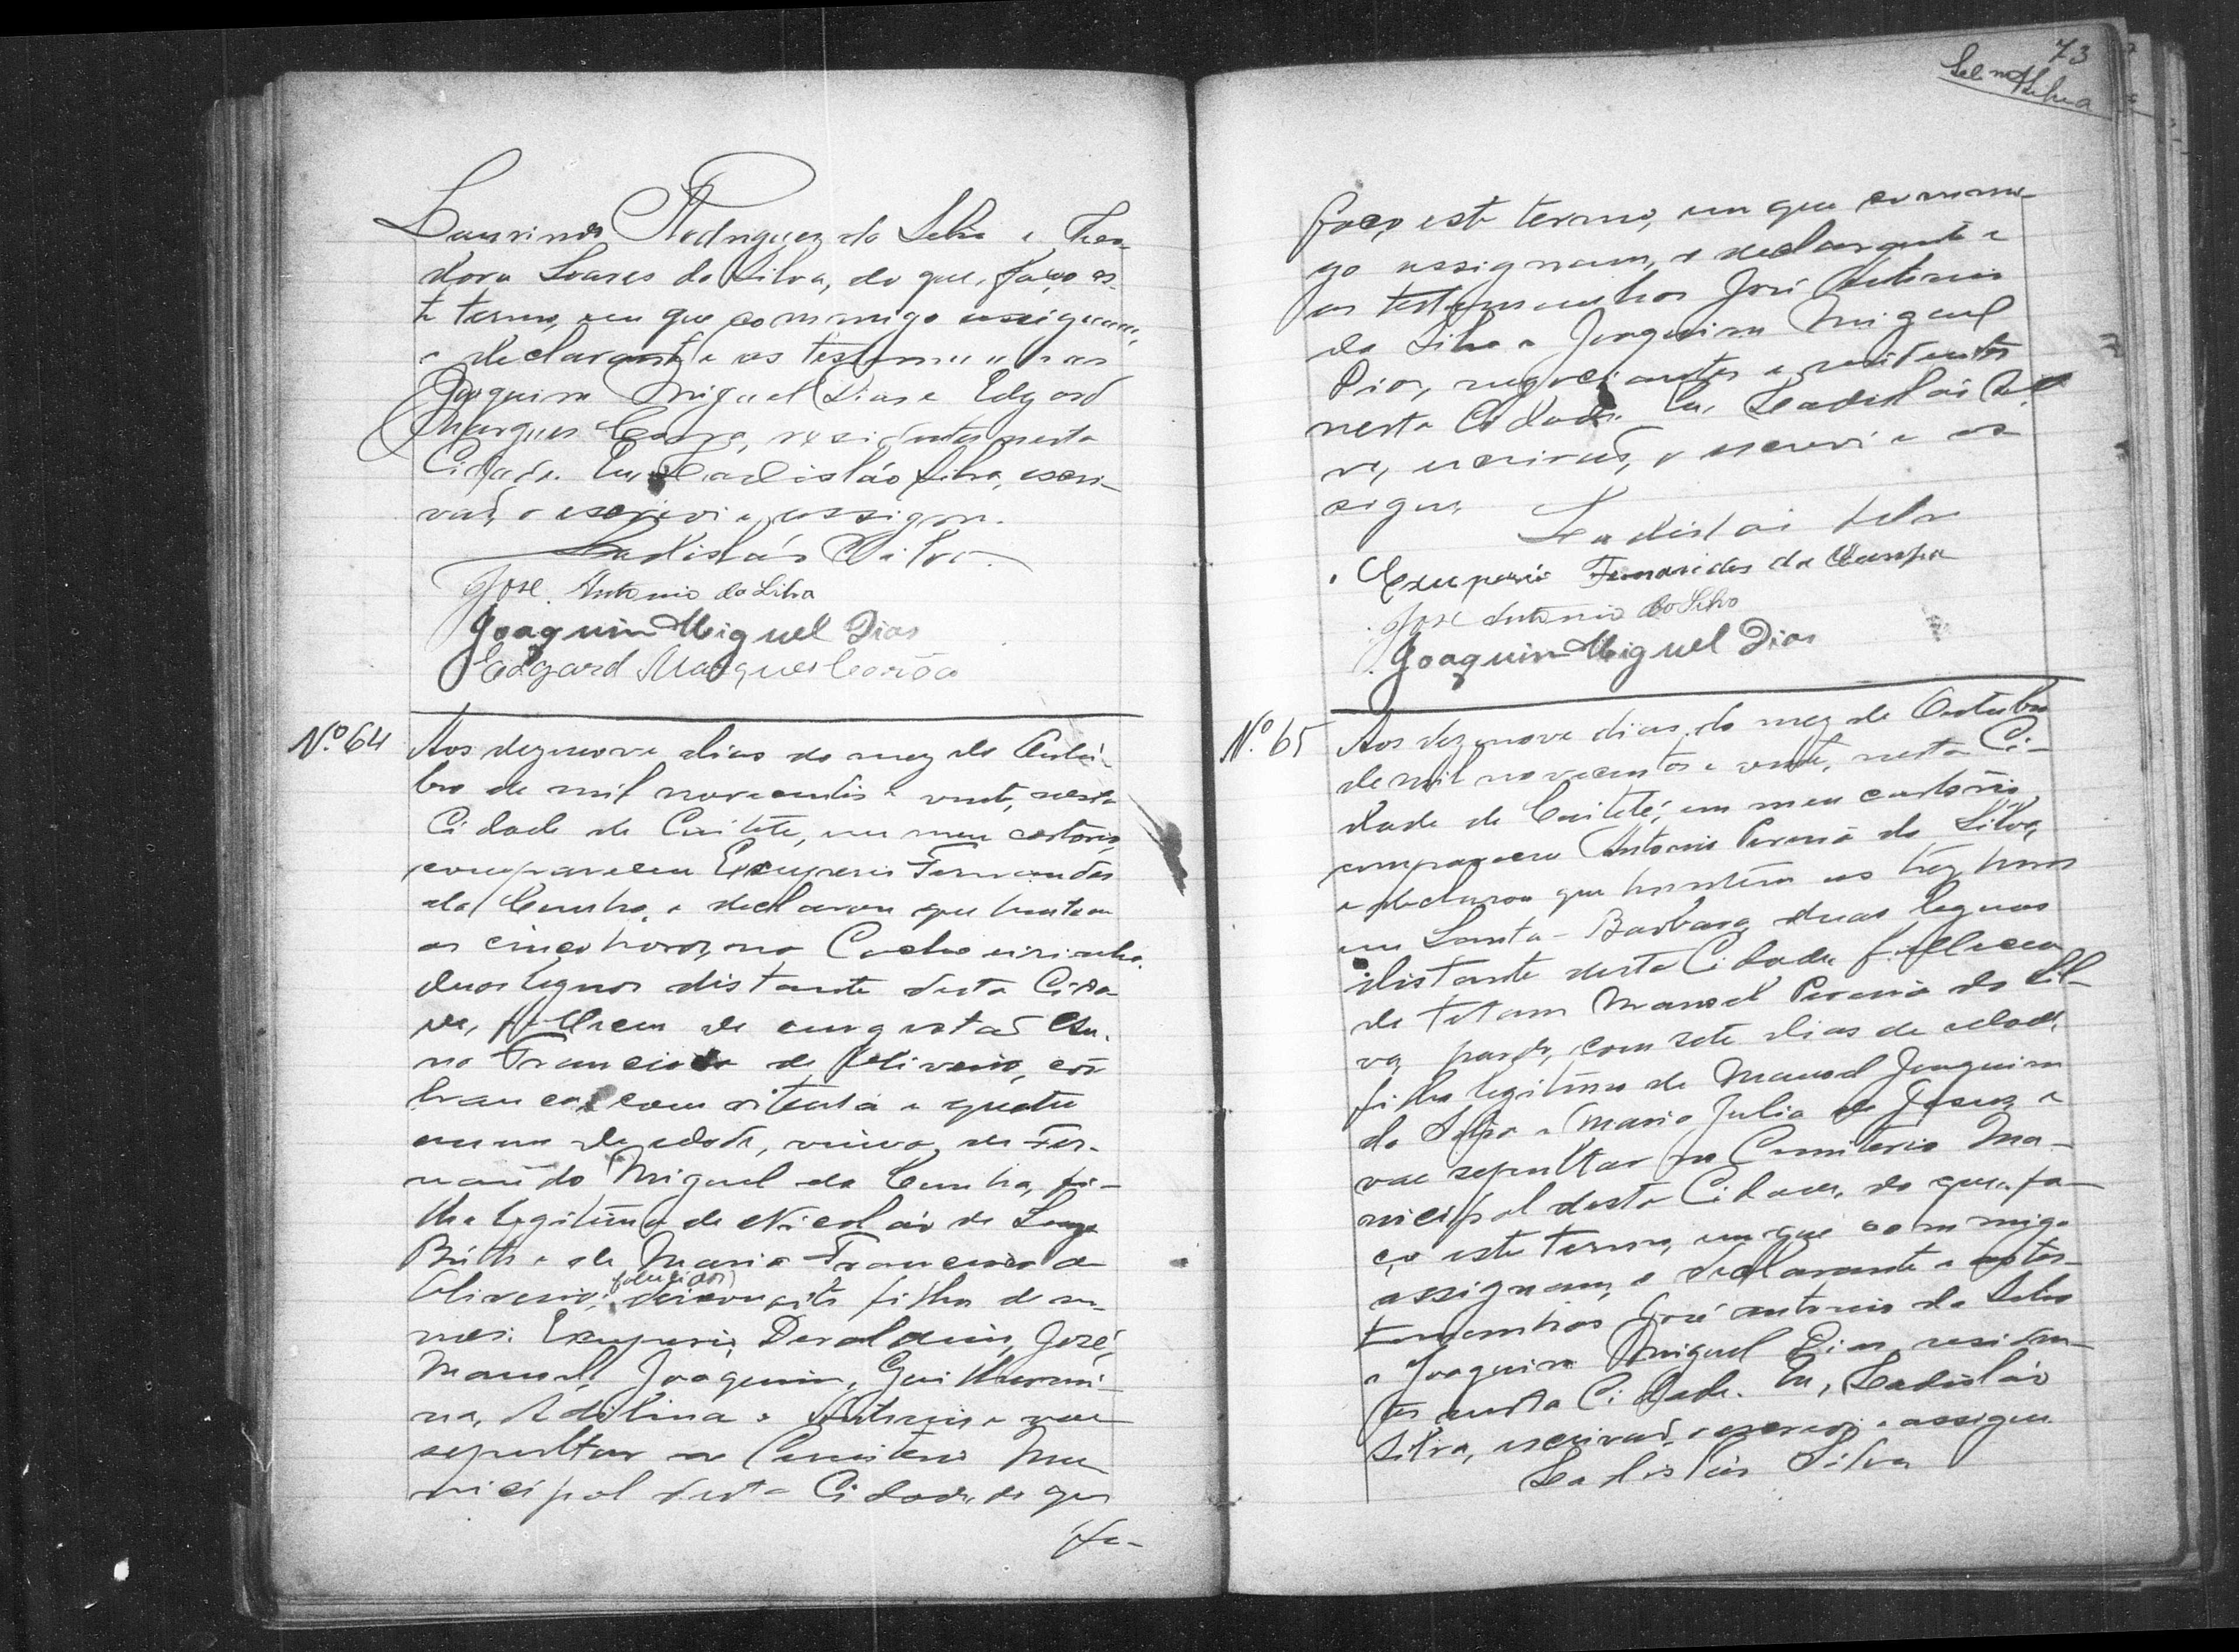 Laurindo Rodrigues da Silva e Theo-
dora Soares da Silva, do que, faço es-
te termo, em que commigo assignam,
o declarante e as testemunhas
Joaquim Miguel Dias e Edgard
Marques residentes nesta
Cidade. Eu, Ladisláo Silva, escri-
vaõ, o escrevi e assigno.
Ladisláo Silva.
José Antonio da Silva
Joaquim Miguel Dias
Edgard Marques
Nº 64
Aos dezenove dias do mez de Outu-
bro de mil novecentos e vinte, nesta
Cidade de Caiteté, em meu cartorio,
compareceu Exuperio Fernandes
da Cunha, e declarou que hontem
as cinco horas, na Cachoeirinha,
duas leguas distante desta Cida-
de, falleceu de congestaõ
Francisca de Oliveira, côr
branca, com oitenta e quatro
annos de edade, viuva de Fer-
nando Miguel da Cunha, fi-
lha legitima de Nicoláo de Souza
Brito e de Maria Francisca de
Oliveira, (fallecidos) deixou oito filhos de no-
mes: Exuperio, José,
Manoel, Joaquim, Guilhermi-
na, Adelina e Antonio e vae
sepultar no Cemiterio Mu-
nicipal desta Cidade, do que
fa-
73
Silva
faço este termo, em que commi-
go assignam, o declarante e
as testemunhas José Antonio
da Silva e Joaquim Miguel
Dias, negociantes e residentes
nesta Cidade. Eu, Ladisláo Sil-
va, escrivaõ, o escrevi e as-
signo.
Ladisláo Silva
Exuperio Fernandes da Cunha
José Antonio da Silva
Joaquim Miguel Dias
Nº 65
Aos dezenove dias do mez de Outubro
de mil novecentos e vinte, nesta Ci-
dade de Caiteté, em meu cartorio,
compareceu Antonio Pereira da Silva,
e declarou que hontem as trez horas
em Santa-Barbara, duas leguas
distante desta Cidade, falleceu
de tetano Manoel Pereira da Sil-
va, pardo, com sete dias de edade,
filho legitimo de Manoel Joaquim
da Silva e Maria Julia de Jesus e
vae sepultar no Cemiterio Mu-
nicipal desta Cidade, do que, fa-
ço este termo, em que commigo
assignam, o declarante e as tes-
temunhas José Antonio da Silva
e Joaquim Miguel Dias, residen-
tes nesta Cidade. Eu, Ladisláo
Silva, escrivaõ, o escrevi e assigno
Ladisláo Silva